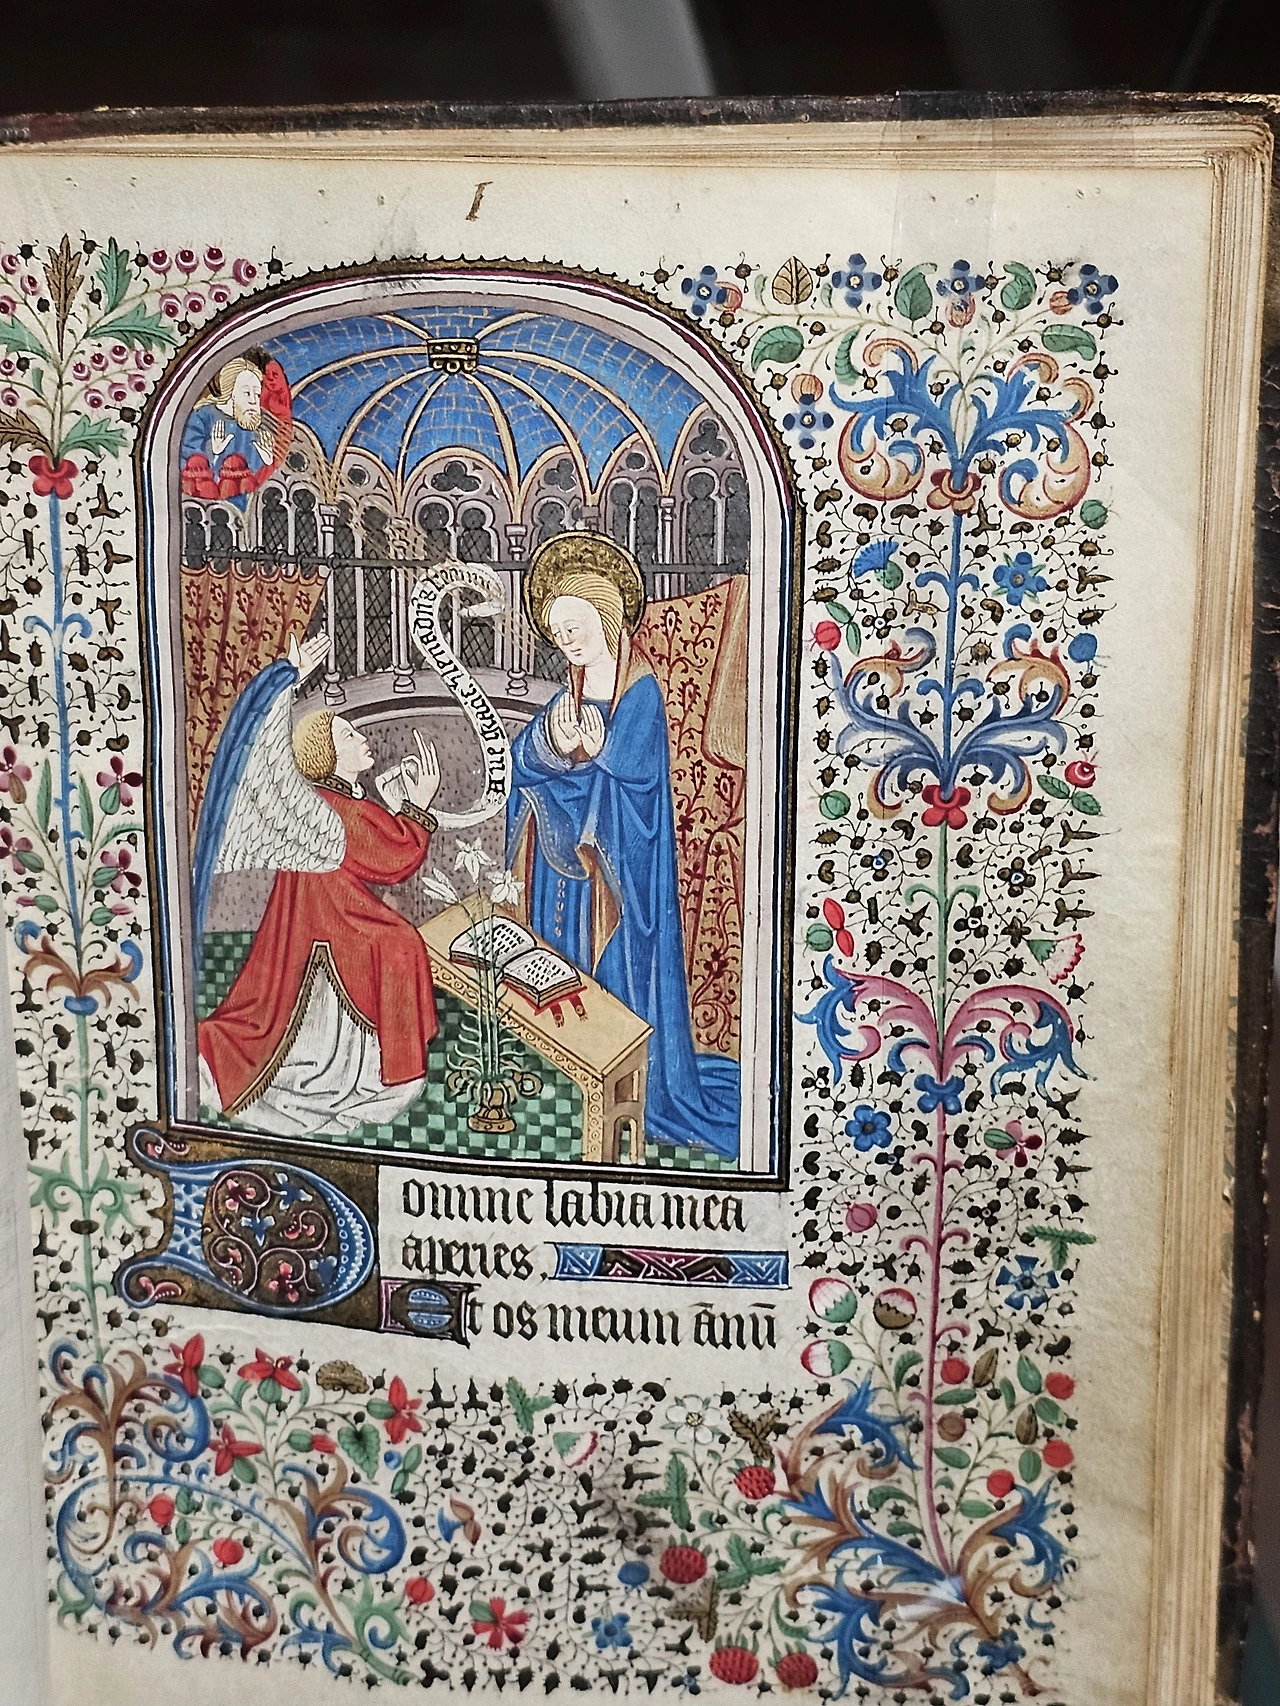 I
Aue gracie plena dn̄s tecum
Domine labia mea
aperies.
Et os meum ānū